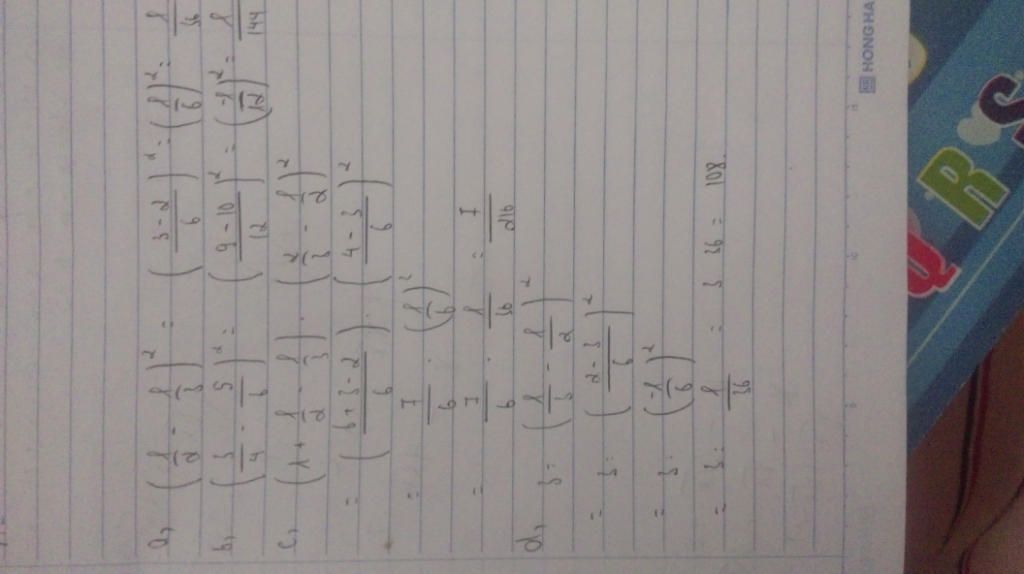 a, (1/2 - 1/3)² = ((3-2)/6)² = (1/6)² = 1/36
b, (3/4 - 5/6)² = ((9-10)/12)² = (-1/12)² = 1/144
c, (1 + 1/2 - 1/3) . (2/3 - 1/2)²
= ((6+3-2)/6) . ((4-3)/6)²
= 7/6 . (1/6)²
= 7/6 . 1/36 = 7/216
d, 3: (1/3 - 1/2)²
= 3: ((2-3)/6)²
= 3: (-1/6)²
= 3: 1/36 = 3 36 = 108
HONG HA
R S